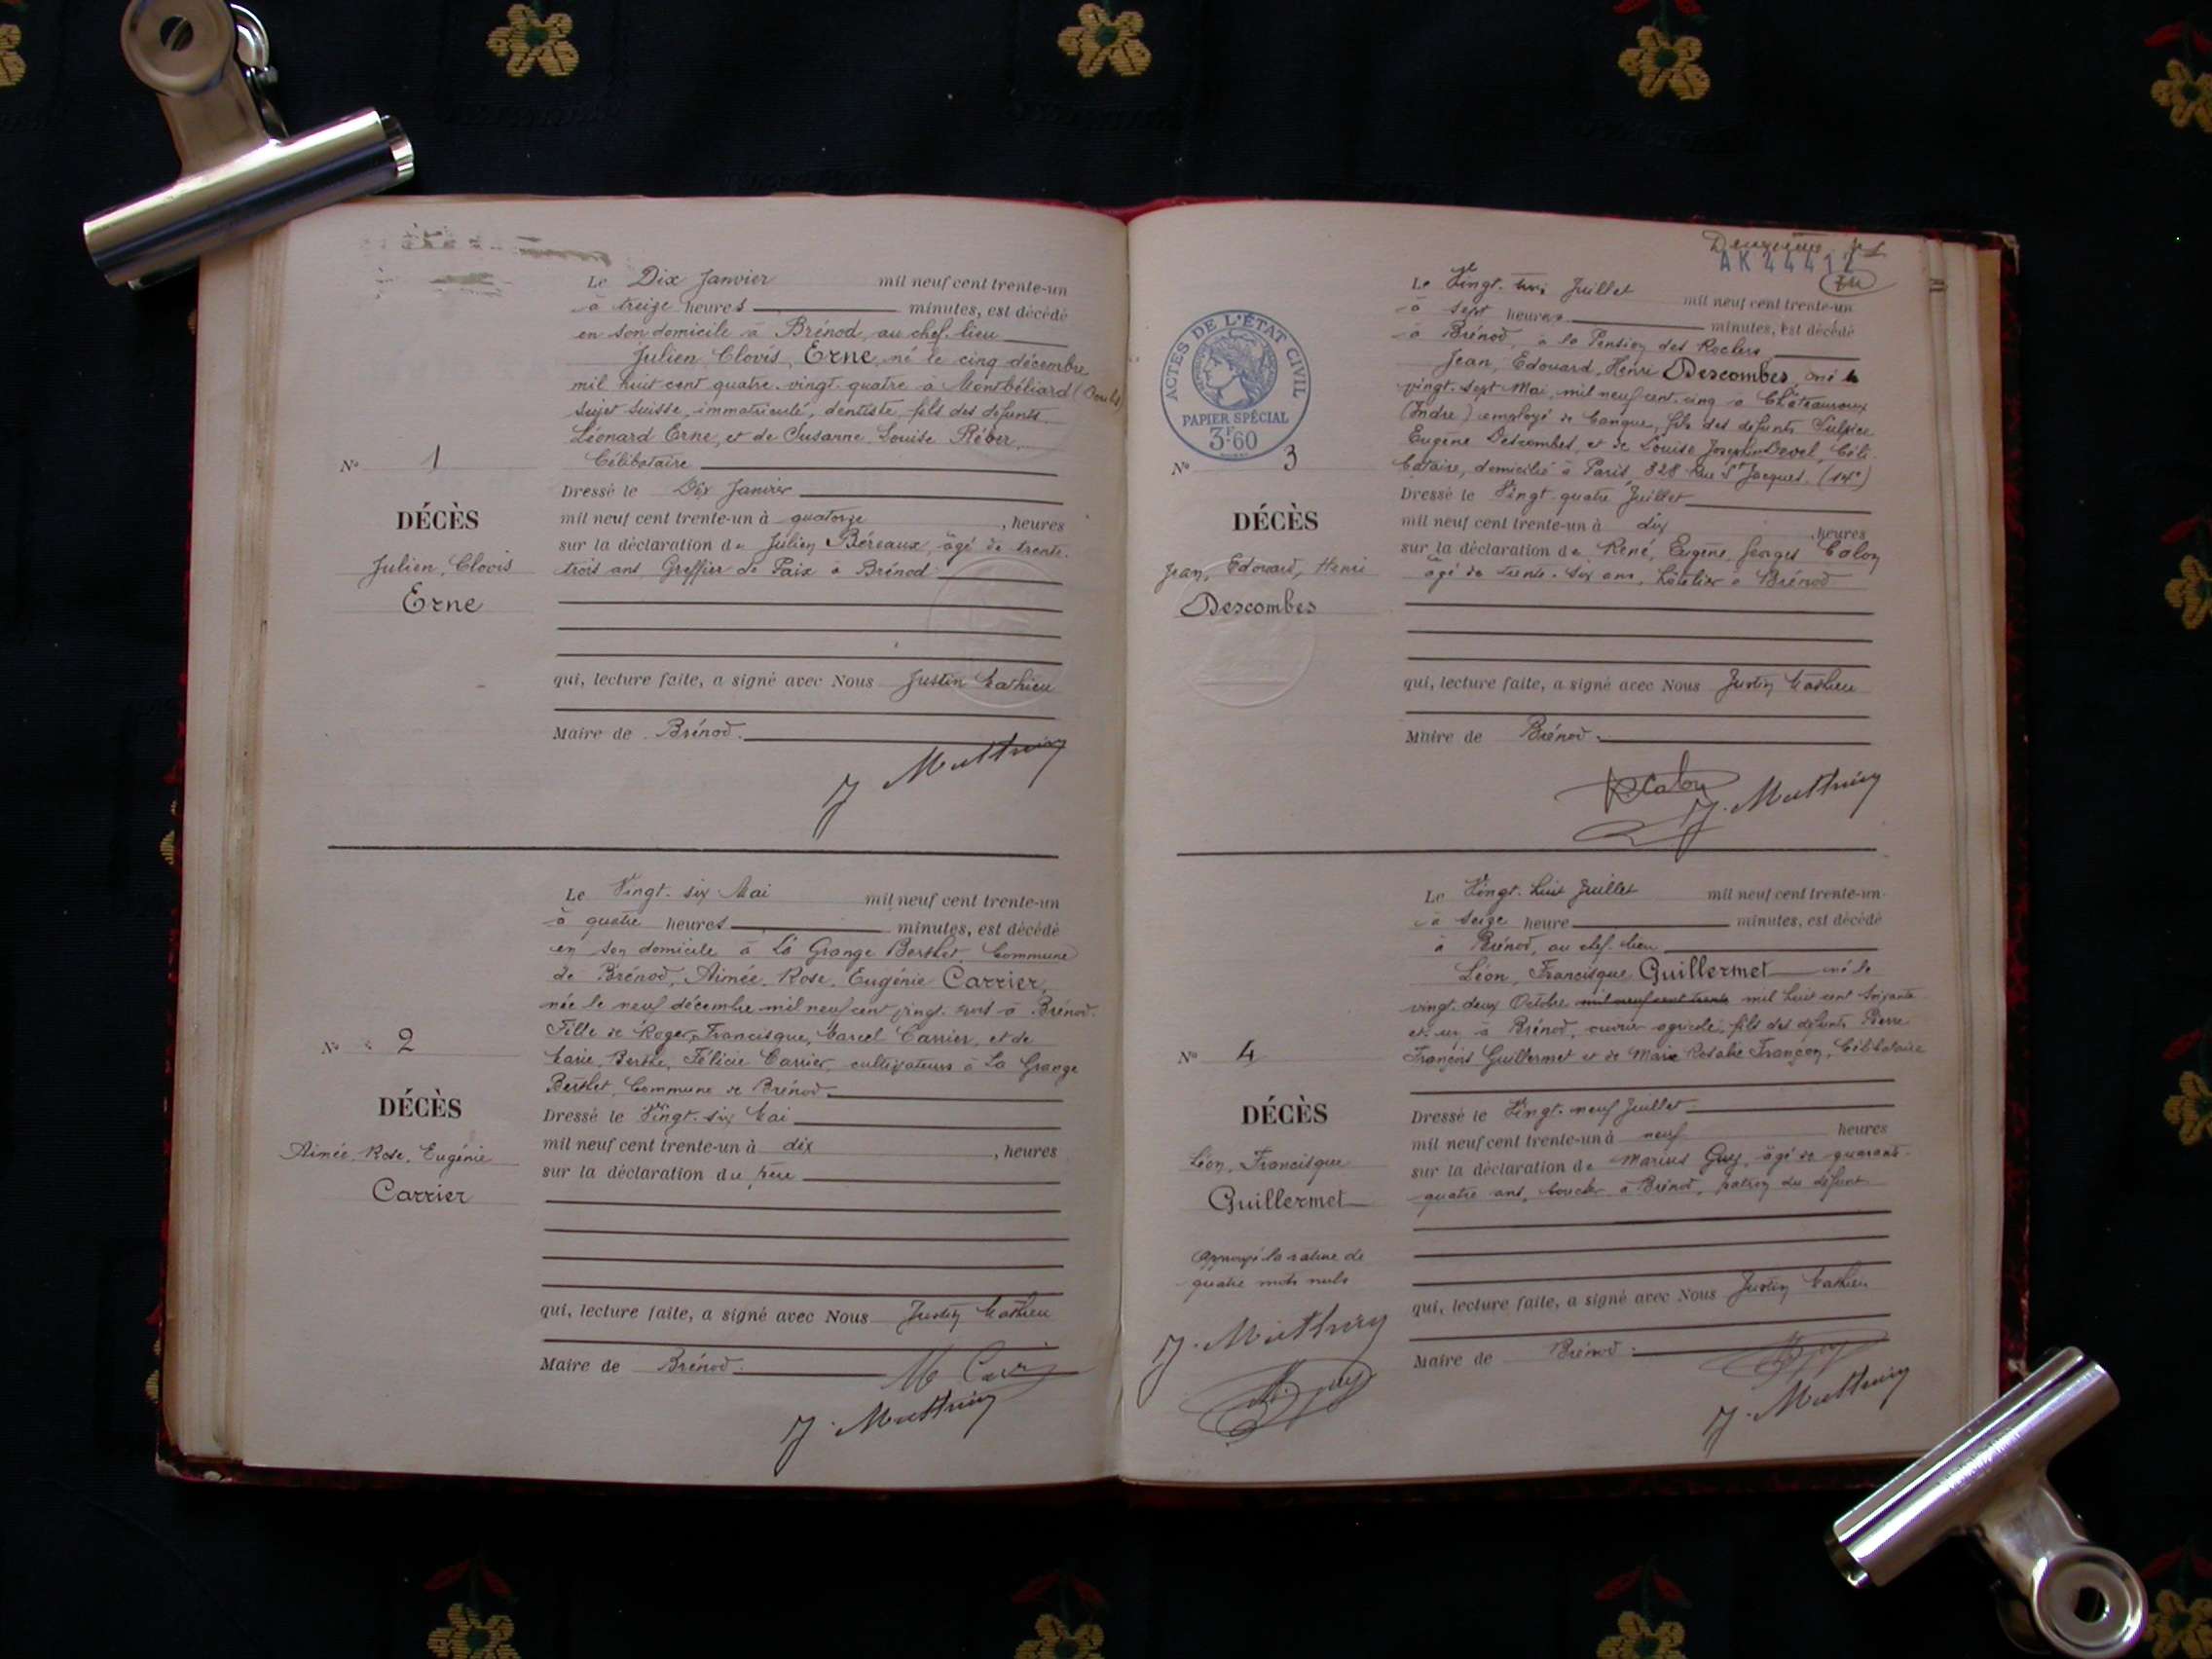 Le Dix Janvier mil neuf cent trente-un
à treize heures minutes, est décédé
en son domicile à Brénod, au chef-lieu
Julien Clovis, Erne, né le cinq décembre
mil huit cent quatre-vingt-quatre à Montbéliard (Doubs)
sujet suisse, immatriculé, dentiste, fils des défunts
Léonard Erne, et de Susanne Louise Réber,
Célibataire
N° 1
DÉCÈS
Julien, Clovis
Erne
Dressé le Dix Janvier
mil neuf cent trente-un à quatorze, heures
sur la déclaration de Julien Béreaux, âgé de trente-
trois ans Greffier de Paix à Brénod
qui, lecture faite, a signé avec Nous Justin Mathieu
Maire de Brénod.
J Mathieu
Le Vingt-six Mai mil neuf cent trente-un
à quatre heures minutes, est décédé
en son domicile à La Grange Berthet, Commune
de Brénod, Aimée, Rose, Eugénie Carrier,
née le neuf décembre mil neuf cent vingt à Brénod.
Fille de Roger, Francisque, Marcel Carrier, et de
Marie, Berthe, Félicie Carrier, cultivateurs à La Grange
Berthet, Commune de Brénod.
N° 2
DÉCÈS
Aimée, Rose, Eugénie
Carrier
Dressé le Vingt-six Mai
mil neuf cent trente-un à dix, heures
sur la déclaration du père
qui, lecture faite, a signé avec Nous Justin Mathieu
Maire de Brénod.
J. Mathieu
Deuxième
AK 4441
ACTES DE L'ÉTAT CIVIL
PAPIER SPÉCIAL
3F.60
Le Vingt-trois Juillet mil neuf cent trente-un
à sept heures minutes, est décédé
à Brénod, à la Pension des Rochers
Jean, Edouard, Henri Descombes, né le
vingt-sept Mai, mil neuf cent cinq à Châteauroux
(Indre) employé de banque, fils des défunts Sulpice
Eugène Descombes, et de Louise Joséphine Devel, Céli-
bataire, domicilié à Paris, 328 Rue St Jacques. (14e)
N° 3
DÉCÈS
Jean, Edouard, Henri
Descombes
Dressé le Vingt-quatre Juillet
mil neuf cent trente-un à dix, heures
sur la déclaration de René, Eugène, Georges Calon
âgé de trente-six ans, hôtelier à Brénod
qui, lecture faite, a signé avec Nous Justin Mathieu
Maire de Brénod.
R Calon
J. Mathieu
Le Vingt-huit Juillet mil neuf cent trente-un
à seize heure minutes, est décédé
à Brénod, au chef-lieu
Léon, Francisque Guillermet né le
vingt-deux Octobre mil neuf cent trente mil huit cent soixante
et un à Brénod, ouvrier agricole, fils des défunts Pierre
François Guillermet et de Marie Rosalie Françon, Célibataire
N° 4
DÉCÈS
Léon, Francisque
Guillermet
Dressé le Vingt-neuf Juillet
mil neuf cent trente-un à neuf heures
sur la déclaration de Marius Guy, âgé de quarante-
quatre ans, boucher à Brénod, patron du défunt
Approuvé la rature de
quatre mots nuls
J. Mathieu
qui, lecture faite, a signé avec Nous Justin Mathieu
Maire de Brénod.
J. Mathieu